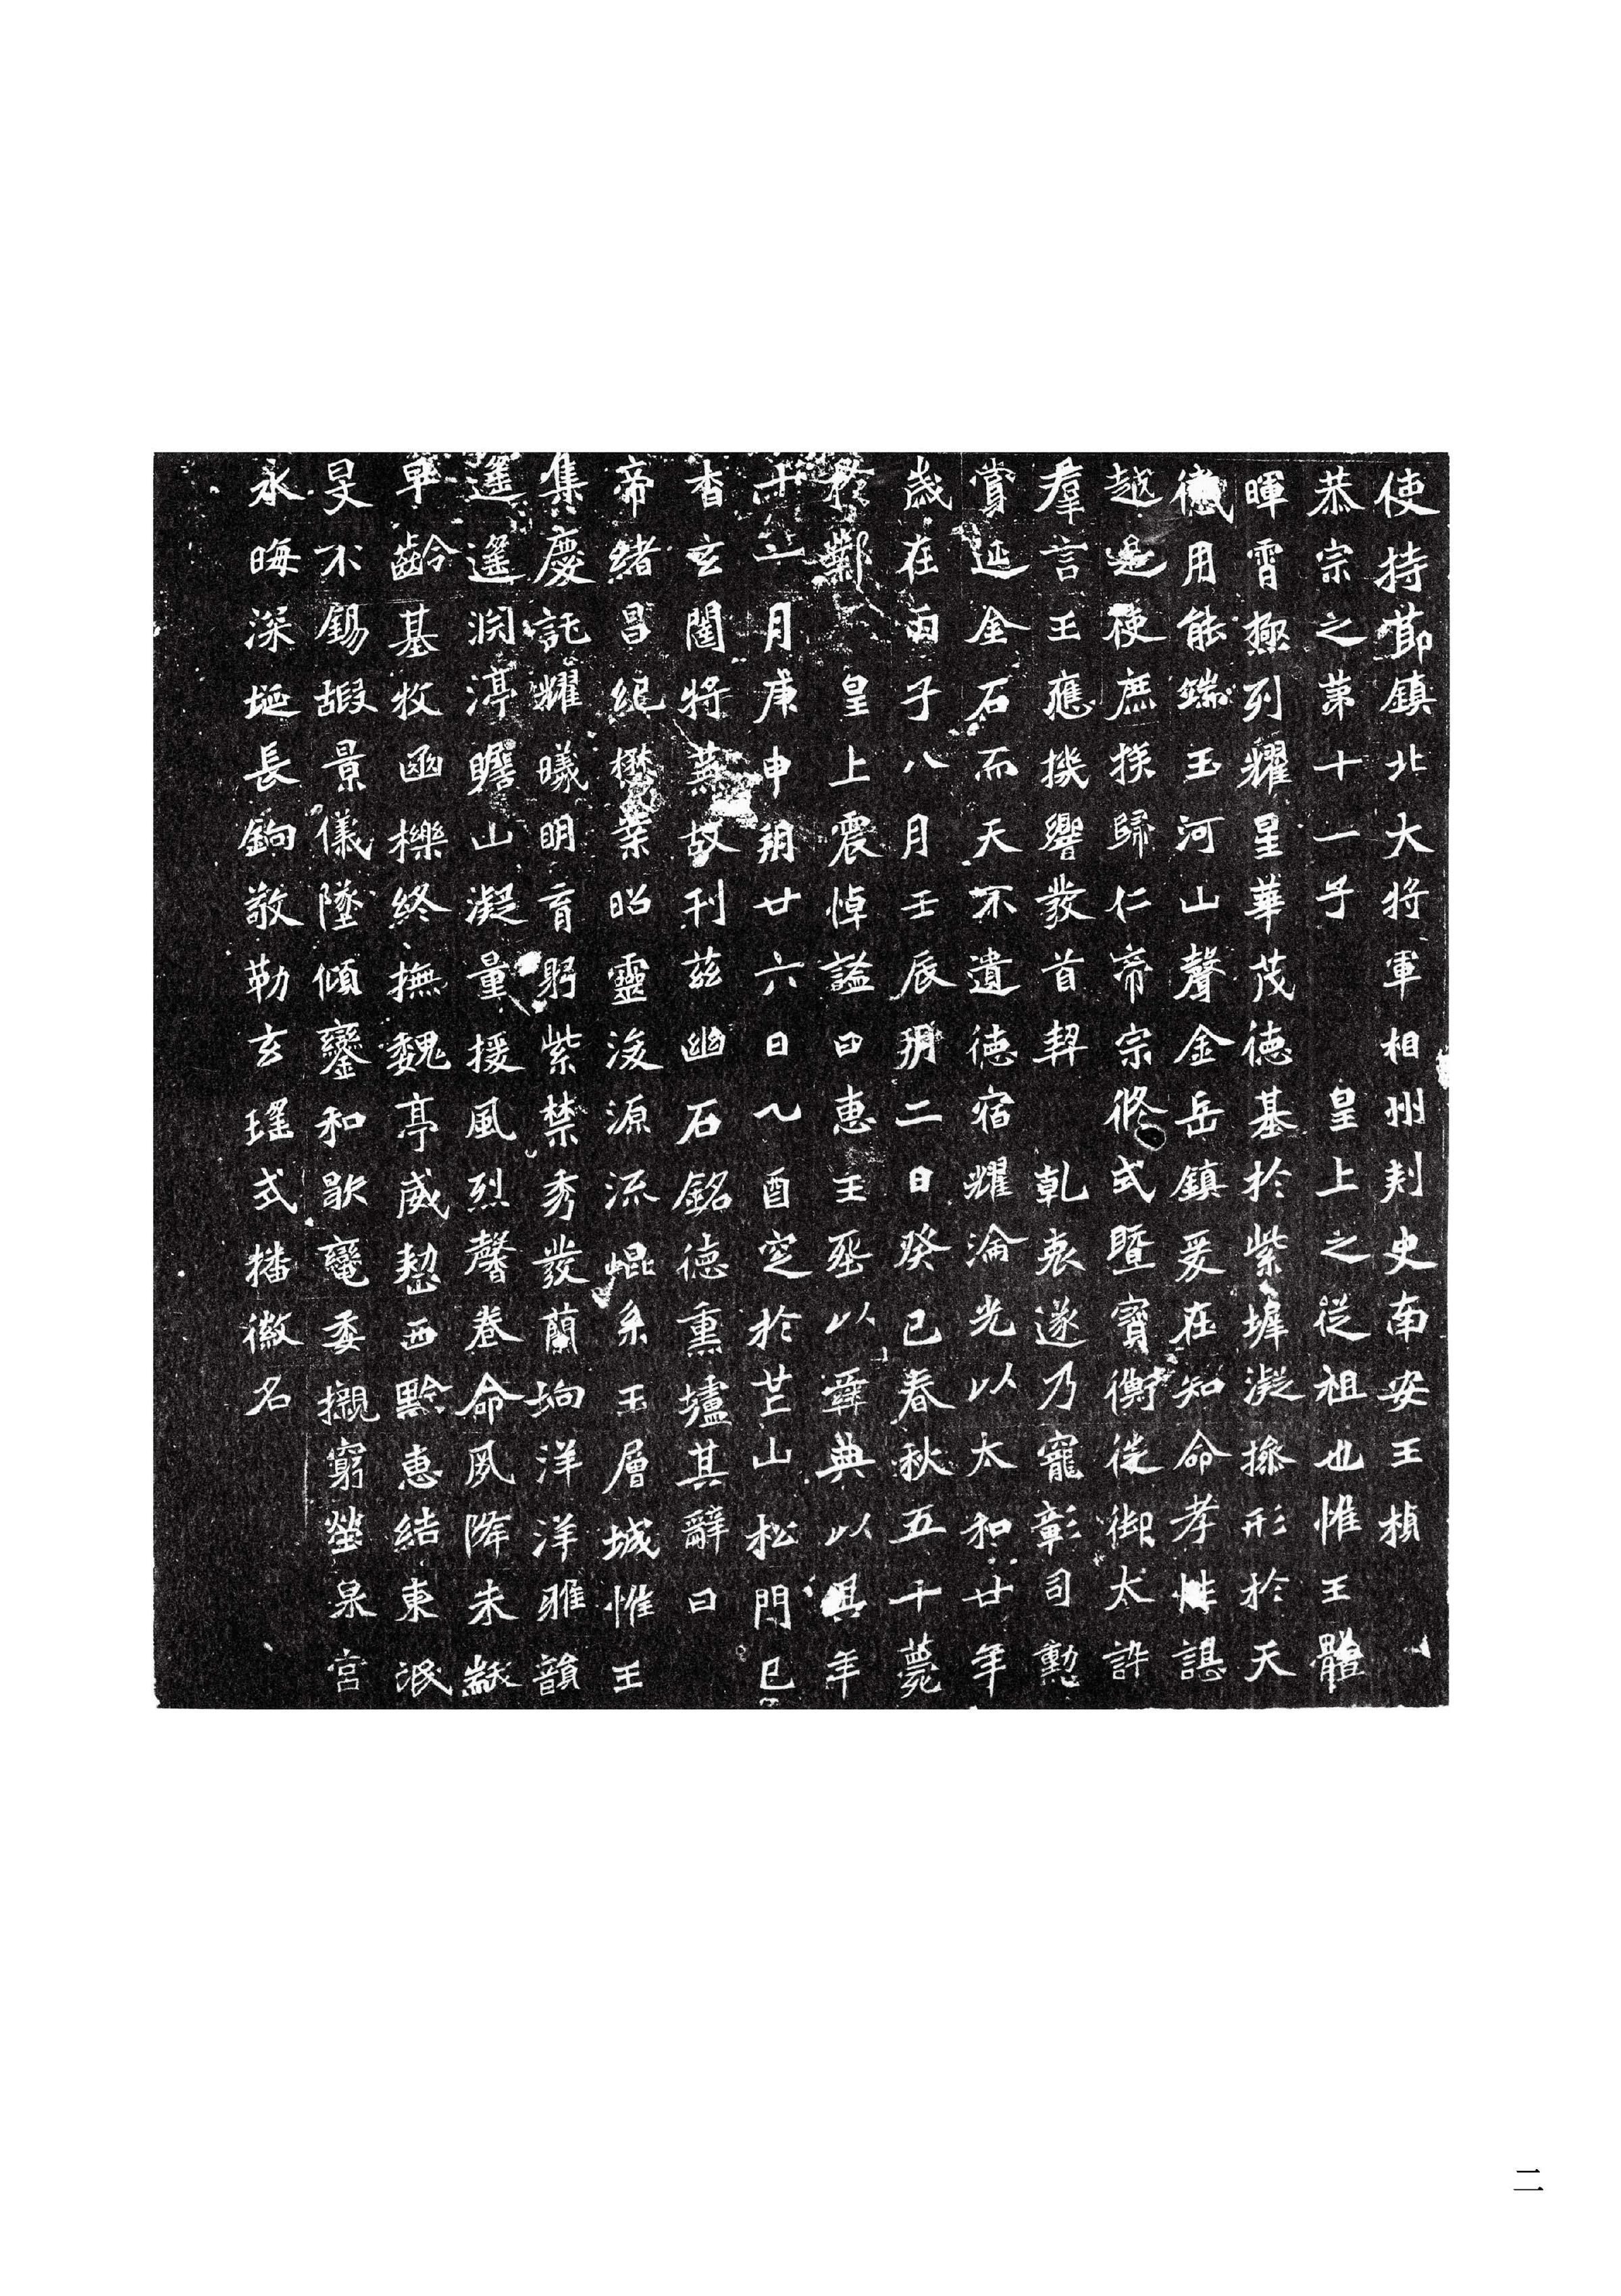 使持節鎮北大將軍相州刺史南安王楨
恭宗之第十一子皇上之從祖也惟王體
暉霄極列耀星華茂德基於紫墀凝操形於天
德用能端玉河山聲金岳鎮爰在知命孝性諶
越是使庶族歸仁帝宗攸式暨寶衡徙御太訏
羣言王應機響發首契乾衷遂乃寵彰司勳
賞延金石而天不遺德宿耀淪光以太和廿年
歲在丙子八月壬辰朔二日癸巳春秋五十薨
於鄴皇上震悼謚曰惠王葬以彝典以其年
十一月庚申朔廿六日乙酉窆於芒山松門已
杳玄闥將蕪故刊茲幽石銘德熏壚其辭曰
帝緒昌紀懋業昭靈浚源流崐系玉層城惟王
集慶託耀曦明育躬紫禁秀發蘭坰洋洋雅韻
遙遙淵渟瞻山凝量援風烈馨卷命夙降未黻
早齡基牧函櫟終撫魏亭威慹西黔惠結東氓
旻不錫嘏景儀墜傾鑾和歇轙委櫬窮塋泉宮
永晦深埏長鉤敬勒玄瑤式播徽名
二